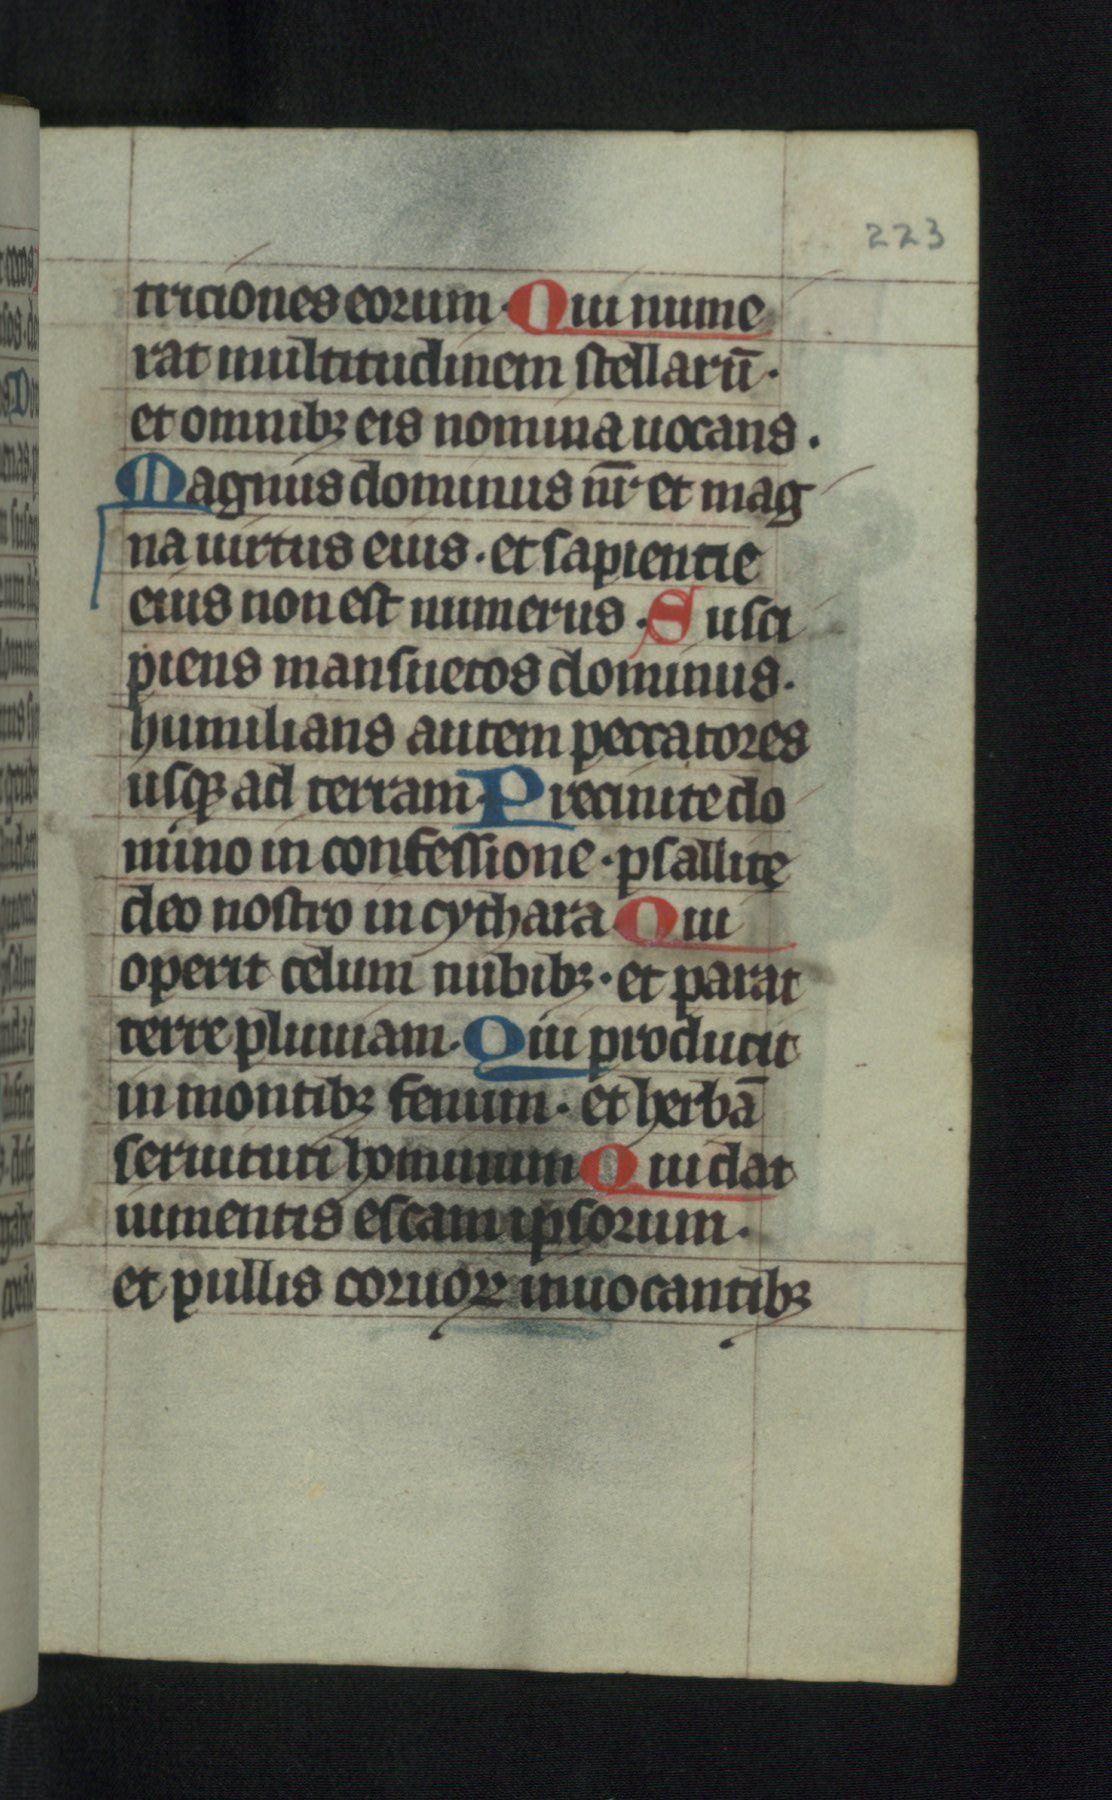 223
triciones eorum · Qui nume
rat multitudinem stellarū ·
et omnibꝫ eis nomina uocans ·
Magnus dominus nr̄ · et mag
na uirtus eius · et sapientie
eius non est numerus · Susci
piens mansuetos dominus ·
humilians autem peccatores
usqꝫ ad terram · Precinite do
mino in confessione · psallite
deo nostro in cythara Qui
operit celum nubibꝫ · et parat
terre pluuiam · Qui producit
in montibꝫ fenum · et herbā
seruituti hominum Qui dat
iumentis escam ipsorum ·
et pullis coruoꝝ inuocantibꝫ